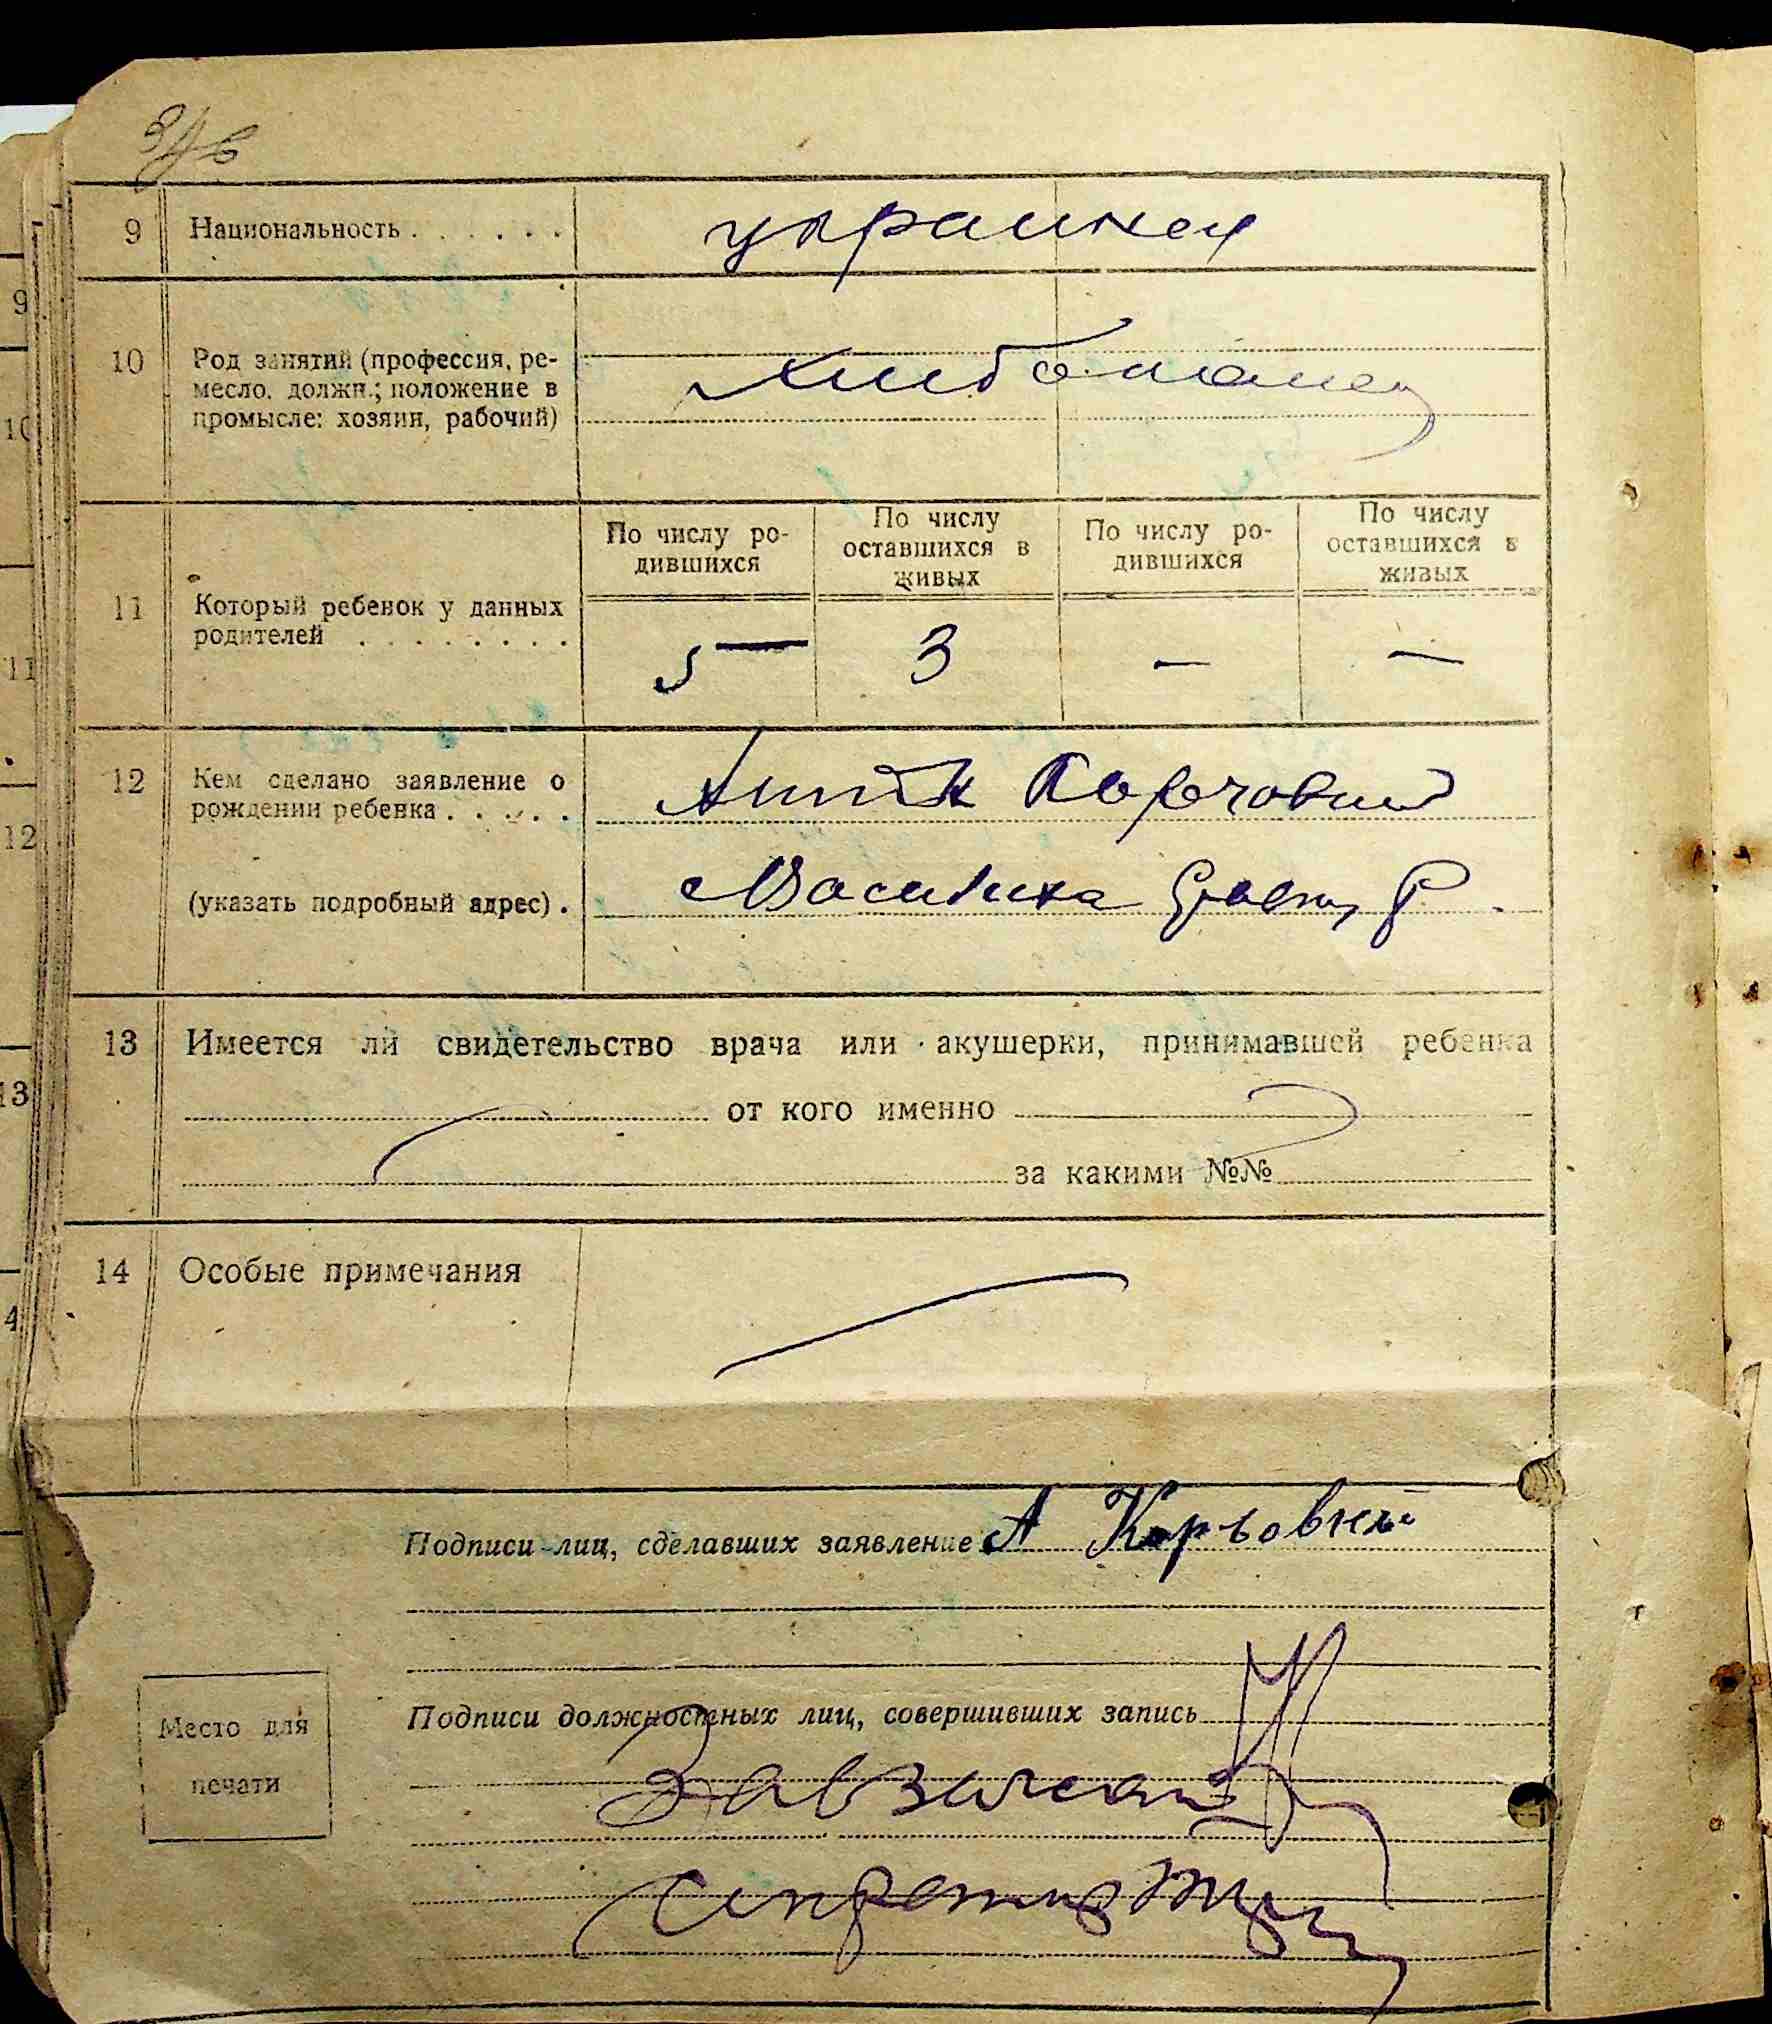 9 Национальность . . . . . . украинец
10 Род занятий (профессия, ре-
месло, должн.; положение в
промысле: хозяин, рабочий)
По числу ро-
дившихся
По числу
оставшихся в
живых
По числу ро-
дившихся
По числу
оставшихся в
живых
11 Который ребенок у данных
родителей . . . . . . . .
5 3 — —
12 Кем сделано заявление о
рождении ребенка . . . . .
(указать подробный адрес) .
13 Имеется ли свидетельство врача или акушерки, принимавшей ребенка
от кого именно
за какими №№
14 Особые примечания
Подписи лиц, сделавших заявление А
Подписи должностных лиц, совершивших запись
Место для
печати
Завзагсом
Секретарь
9
10
11
12
13